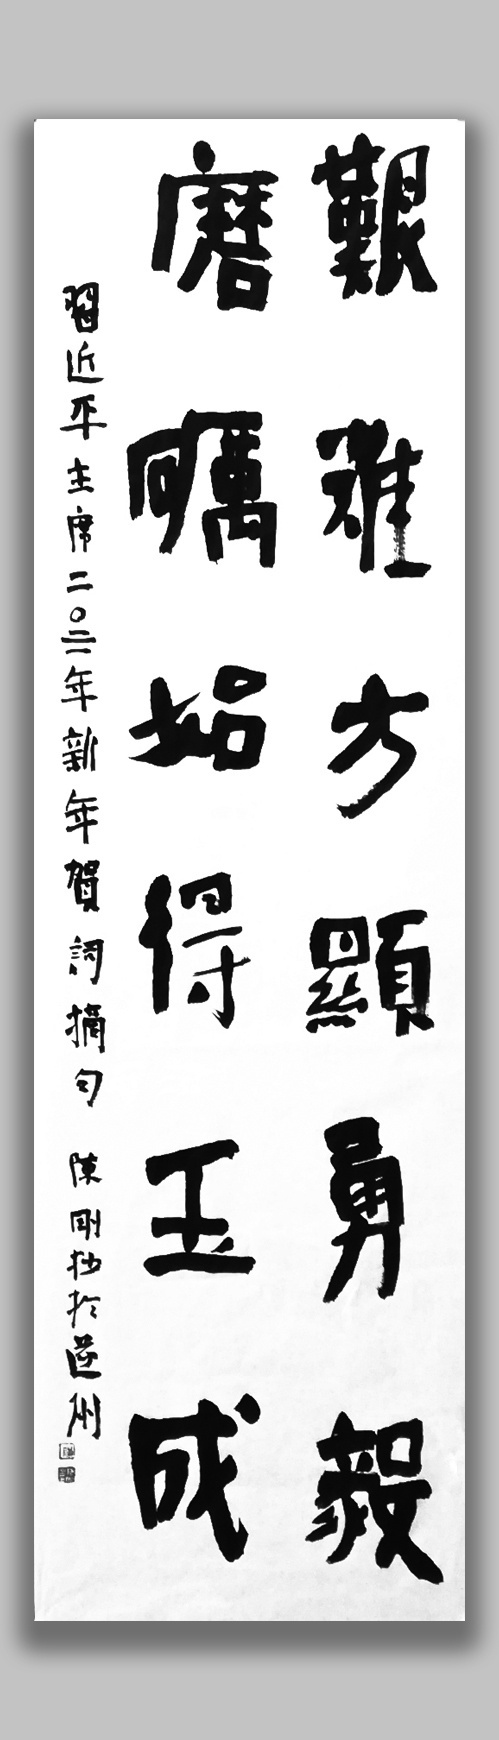 艱難方顯勇毅
磨礪始得玉成
習近平主席二〇二一年新年賀詞摘句 陳剛抄於州